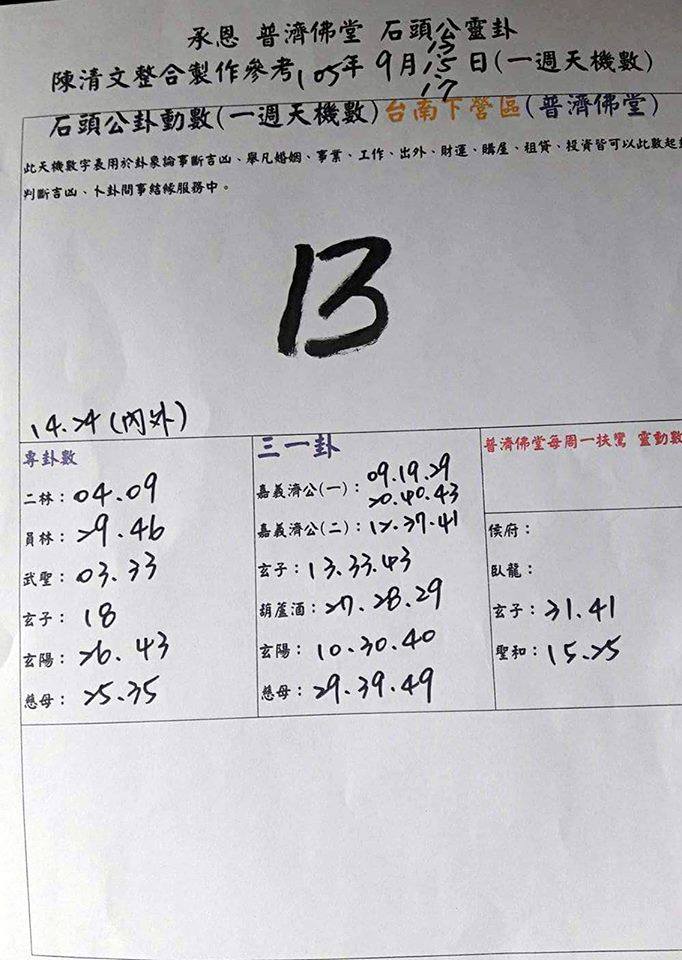 承恩 普濟佛堂 石頭公靈卦
13
陳清文整合製作參考105年 9月15日(一週天機數)
17
石頭公卦動數(一週天機數)台南下營區(普濟佛堂)
此天機數字表用於卦象論事斷吉凶、舉凡婚姻、事業、工作、出外、財運、購屋、租貸、投資皆可以此數起
判斷吉凶、卜卦問事結緣服務中。
13
14.24(內外)
專卦數
二林：04.09
員林：29.46
武聖：03.33
玄子：18
玄陽：26.43
慈母：25.35
三一卦
嘉義濟公(一)：09.19.29
20.40.43
嘉義濟公(二)：12.37.41
玄子：13.33.43
葫蘆酒：27.28.29
玄陽：10.30.40
慈母：29.39.49
普濟佛堂每周一扶鸞 靈動數
侯府：
臥龍：
玄子：31.41
聖和：15.25